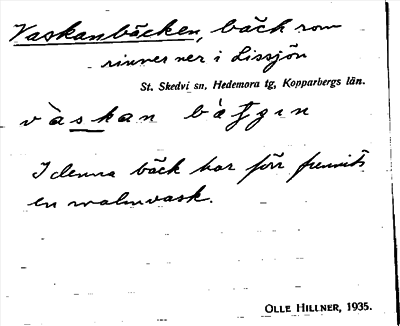 Vaskanbäcken, bäck som
rinner ner i Lissjön
St. Skedvi sn, Hedemora tg, Kopparbergs län.
I denna bäck har förr funnits
en malmvask.
OLLE HILLNER, 1935.